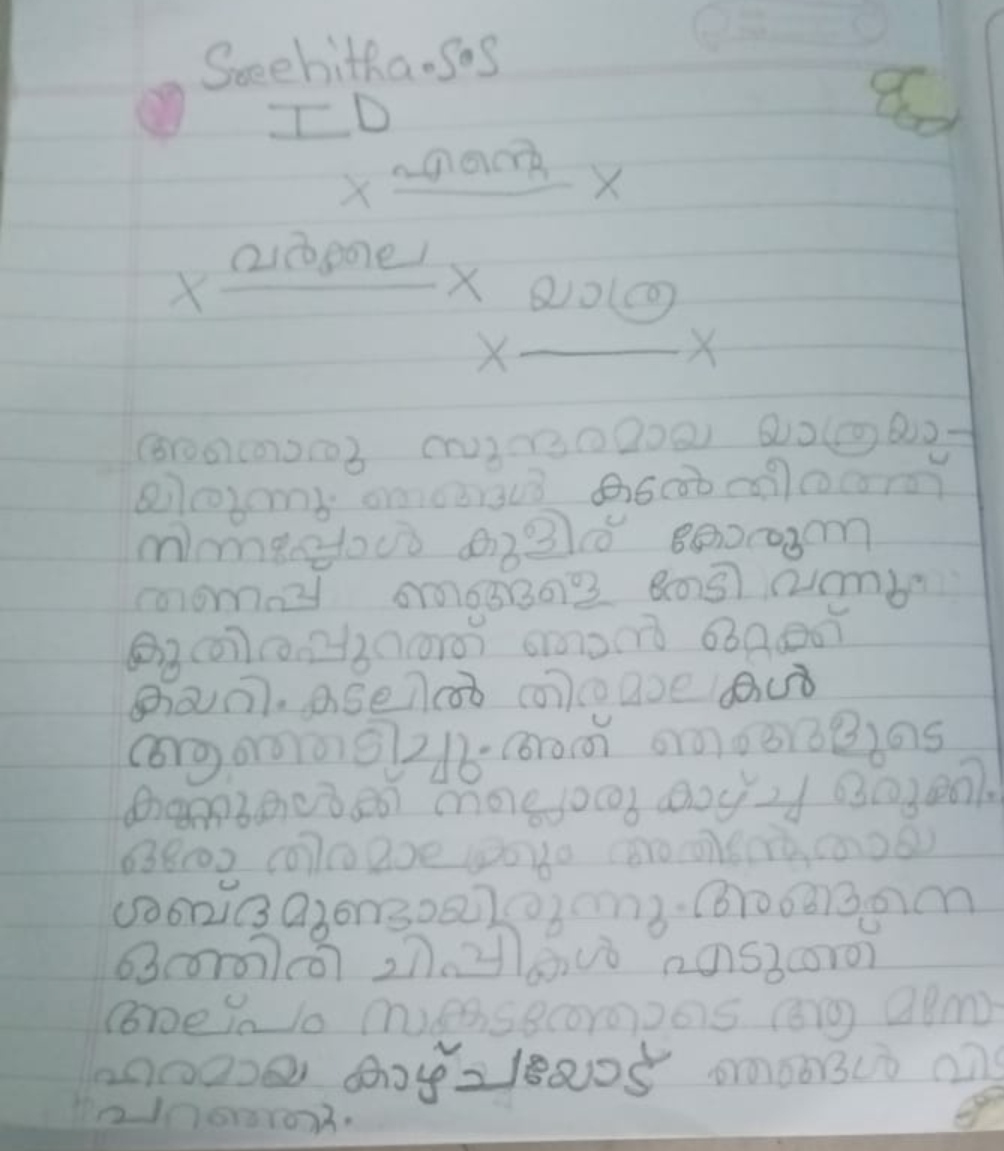 Sreehitha.S.S
I D
എന്റെ
വർക്കല
യാത്ര
അതൊരു സുന്ദരമായ യാത്രയാ-
യിരുന്നു. ഞങ്ങൾ കടൽതീരത്ത്
നിന്നപ്പോൾ കുളിര് കോരുന്ന
തണുപ്പ് ഞങ്ങളെ തേടി വന്നു.
കുതിരപ്പുറത്ത് ഞാൻ ഒറ്റക്ക്
കയറി. കടലിൽ തിരമാല കൾ
ആഞ്ഞടിച്ചു. അത് ഞങ്ങളുടെ
കണ്ണുകൾക്ക് നല്ലൊരു കാഴ്ച്ച ഒരുക്കി.
ഓരോ തിരമാലക്കും അതിന്റേതായ
ശബ്ദമുണ്ടായിരുന്നു. അങ്ങനെ
ഒത്തിരി ചിപ്പികൾ എടുത്ത്
അല്പം സങ്കടത്തോടെ ആ മനോ
ഹരമായ കാഴ്ചയോട് ഞങ്ങൾ വിട
പറഞ്ഞു.